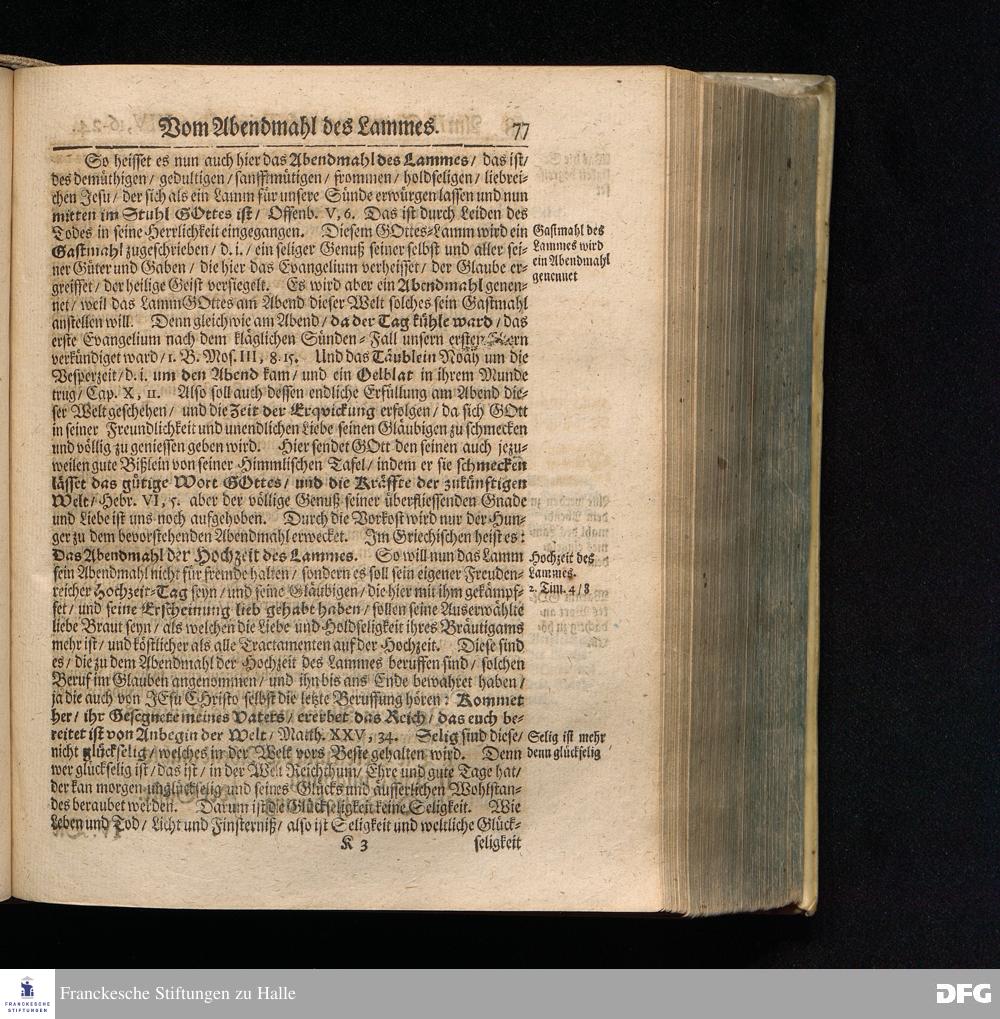 Vom Abendmahl des Lammes. 77
So heisset es nun auch hier das Abendmahl des Lammes/ das ist/
des demüthigen/ gedultigen/ sanfftmütigen/ frommen/ holdseligen/ liebrei-
chen Jesu/ der sich als ein Lamm für unsere Sünde erwürgen lassen und nun
mitten im Stuhl GOttes ist/ Offenb. V, 6. Das ist durch Leiden des
Todes in seine Herrlichkeit eingegangen. Diesem GOttes-Lamm wird ein
Gastmahl zugeschrieben/ d. i. / ein seliger Genuß seiner selbst und aller sei-
ner Güter und Gaben/ die hier das Evangelium verheisset/ der Glaube er-
greiffet/ der heilige Geist versiegelt. Es wird aber ein Abendmahl genen-
net/ weil das Lamm GOttes am Abend dieser Welt solches sein Gastmahl
anstellen will. Denn gleichwie am Abend/ da der Tag kühle ward/ das
erste Evangelium nach dem kläglichen Sünden-Fall unsern ersten
verkündiget ward/ 1. B. Mos. III, 8. 15. Und das Täublein Noäh um die
Vesperzeit/ d. i. um den Abend kam/ und ein Oelblat in ihrem Munde
trug/ Cap. X, 11. Also soll auch dessen endliche Erfüllung am Abend die-
ser Welt geschehen/ und die Zeit der Erqvickung erfolgen/ da sich GOtt
in seiner Freundlichkeit und unendlichen Liebe seinen Gläubigen zu schmecken
und völlig zu geniessen geben wird. Hier sendet GOtt den seinen auch jezu-
weilen gute Bißlein von seiner Himmlischen Tafel/ indem er sie schmecken
lässet das gütige Wort GOttes/ und die Kräffte der zukünftigen
Welt/ Hebr. VI, 5. aber der völlige Genuß seiner überfliessenden Gnade
und Liebe ist uns noch aufgehoben. Durch die Vorkost wird nur der Hun-
ger zu dem bevorstehenden Abendmahl erwecket. Im Griechischen heist es:
Das Abendmahl der Hochzeit des Lammes. So will nun das Lamm
sein Abendmahl nicht für fremde halten/ sondern es soll sein eigener Freuden-
reicher Hochzeit-Tag seyn/ und seine Gläubigen/ die hier mit ihm gekämpf-
fet/ und seine Erscheinung lieb gehabt haben/ sollen seine Auserwählte
liebe Braut seyn/ als welchen die Liebe und Holdseligkeit ihres Bräutigams
mehr ist/ und köstlicher als alle Tractamenten auf der Hochzeit. Diese sind
es/ die zu dem Abendmahl der Hochzeit des Lammes beruffen sind/ solchen
Beruf im Glauben angenommen/ und ihn bis ans Ende bewahret haben/
ja die auch von JEsu CHristo selbst die letzte Beruffung hören: Kommet
her/ ihr Gesegnete meines Vaters/ ererbet das Reich/ das euch be-
reitet ist von Anbegin der Welt/ Matth. XXV, 34. Selig sind diese/
nicht glückselig/ welches in der Welt vors Beste gehalten wird. Denn
wer glückselig ist/ das ist/ in der Welt Reichthum/ Ehre und gute Tage hat/
der kan morgen unglückselig und seines Glücks und äusserlichen Wohlstan-
des beraubet werden. Darum ist die Glückseligkeit keine Seligkeit. Wie
Leben und Tod/ Licht und Finsterniß/ also ist Seligkeit und weltliche Glück-
K 3 seligkeit
Gastmahl des
Lammes wird
ein Abendmahl
genennet
Hochzeit des
Lammes.
2. Tim. 4/ 8
Selig ist mehr
denn glückselig
FRANCKESCHE
STIFTUNGEN
Franckesche Stiftungen zu Halle
DFG